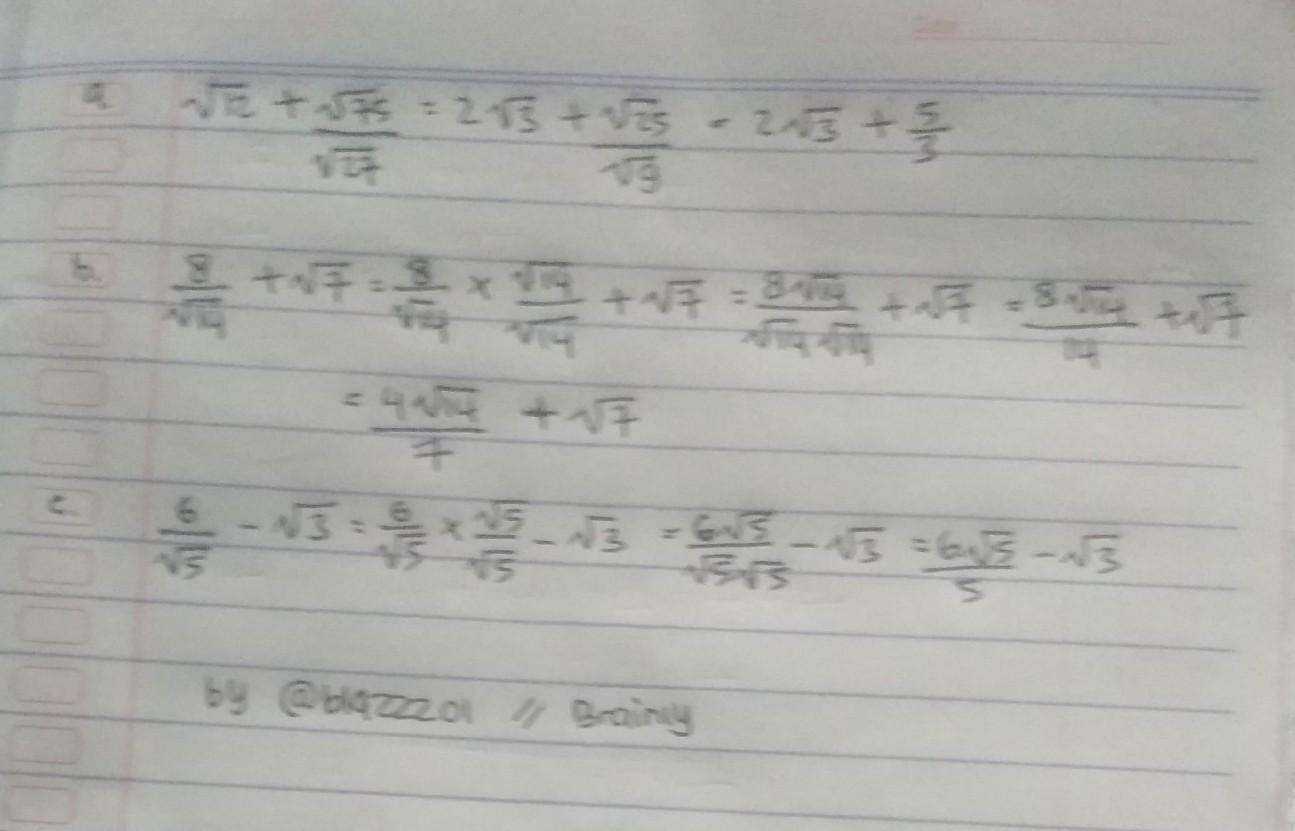 a. √12 + √75/√27 = 2√3 + √25/√9 = 2√3 + 5/3
b. 8/√14 + √7 = 8/√14 × √14/√14 + √7 = 8√14/√14√14 + √7 = 8√14/14 + √7
= 4√14/7 + √7
c. 6/√5 - √3 = 6/√5 × √5/√5 - √3 = 6√5/√5√5 - √3 = 6√5/5 - √3
by // Brainly